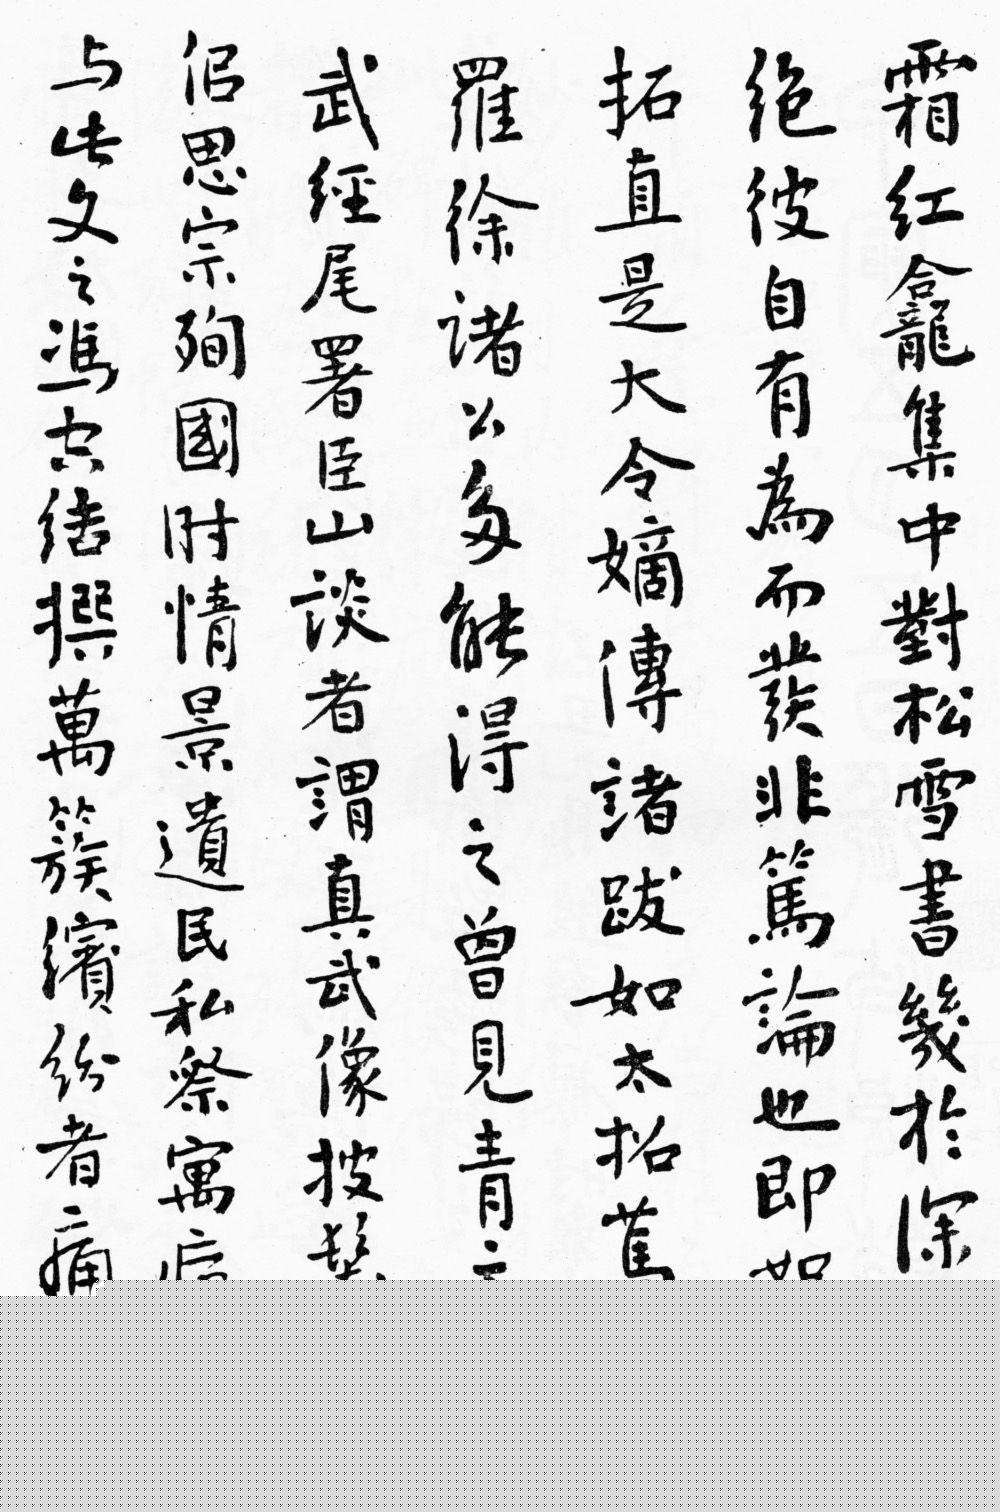 霜紅龕集中對松雪書幾於深
絕彼自有為而發非篤論也即
拓直是大令嫡傳諸跋如太拓舊
羅徐諸公多能得之曾見青
武經尾署臣山談者謂真武像披髮
侶思宗殉國時情景遺民私祭寓
与此文之馮空結撰萬簇繽紛者痛